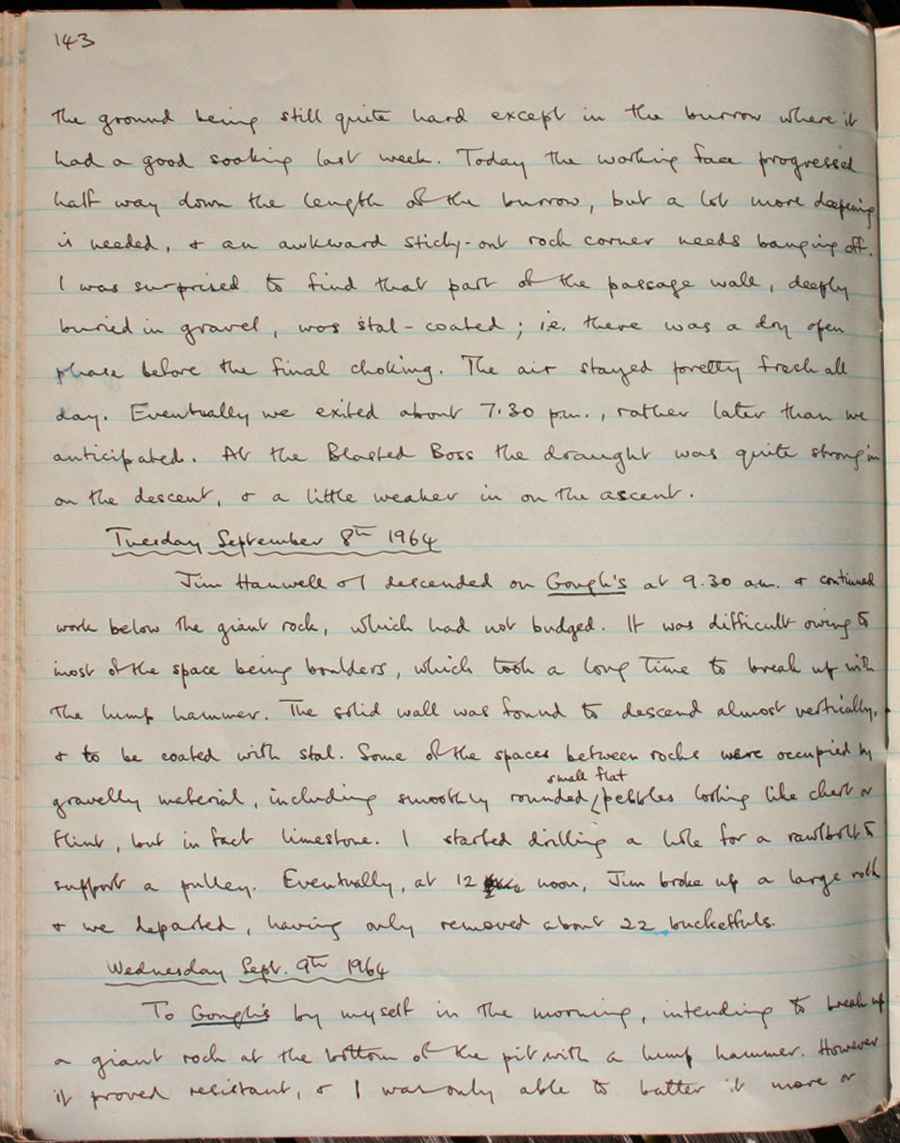 143
the ground being still quite hard except in the burrow where it
had a good soaking last week. Today the working face progressed
half way down the length of the burrow, but a lot more deepening
is needed, & an awkward sticky-out rock corner needs banging off.
I was surprised to find that part of the passage wall, deeply
buried in gravel, was stal-coated; i.e. there was a dry open
phase before the final choking. The air stayed pretty fresh all
day. Eventually we exited about 7.30 p.m., rather later than we
anticipated. At the Blasted Boss the draught was quite strong in
on the descent, & a little weaker in on the ascent.
Tuesday September 8th 1964
Jim Hanwell & I descended on Gough's at 9.30 a.m. & continued
work below the giant rock, which had not budged. It was difficult owing to
most of the space being boulders, which took a long time to break up with
the lump hammer. The solid wall was found to descend almost vertically,
& to be coated with stal. Some of the spaces between rocks were occupied by
small flat
gravelly material, including smoothly rounded pebbles looking like chert or
flint, but in fact limestone. I started drilling a hole for a rawlbolt to
support a pulley. Eventually, at 12 noon, Jim broke up a large rock
& we departed, having only removed about 22 bucketfuls.
Wednesday Sept. 9th 1964
To Gough's by myself in the morning, intending to break up
a giant rock at the bottom of the pit with a lump hammer. However
it proved resistant, & I was only able to batter it more or